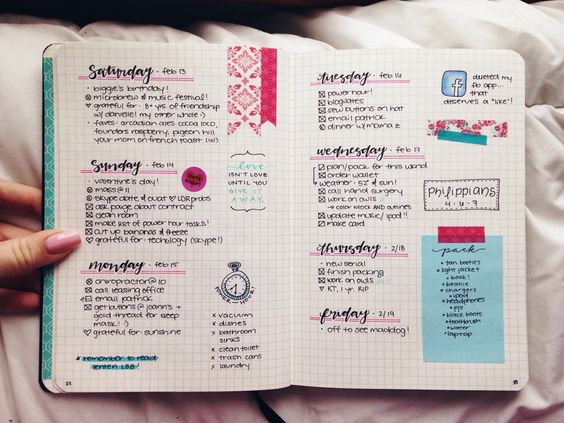 Saturday · feb 13
· biggie's birthday!
microbrew & music festival!
♡ grateful for: 8+ yrs of friendship
w/ danielle! my other whole :)
· faves: arcadian ales cocoa loco,
founders raspberry, pigeon hill
your mom on french toast (lol)
Sunday · feb 14
DATE NIGHT
· valentine's day!
mass @ 11
skype date @ w/ LDR probs
ask paige about contract
clean room
make list of power hour tasks!
cut up bananas & freeze
♡ grateful for: technology (skype!)
love
ISN'T LOVE
UNTIL YOU
GIVE IT
AWAY.
monday · feb 15
chiropractor @ 10
call leasing office
email patrick
get buttons @ joann's +
gold thread for sleep
mask! :)
♡ grateful for: sunshine
* remember to read
lenten LBB!
POWER HOUR!
x vacuum
x dishes
x bathroom
sinks
x clean toilet
x trash cans
x laundry
tuesday · feb 16
power hour!
blogilates
sew buttons on hat
email patrick
dinner w/ momma z
f
deleted my
fb app...
that
deserves a "like"!
wednesday · feb 17
plan/pack for this wknd
order wallet
weather · 52° & sun!
call hand surgery
work on owls
→ color wings AND outlines
update music / ipod!!
make card
philippians
4:6-7
thursday · 2/18
· new serial
finish packing
work on owls
♡ KT, 1 yr. RIP
pack
* tan booties
* light jacket
* book!
* beanie
* chargers
* ipod
* headphones
* pjs
* black boots
* toothbrush
* water
* laptop
friday · 2/19
· off to see maddog!